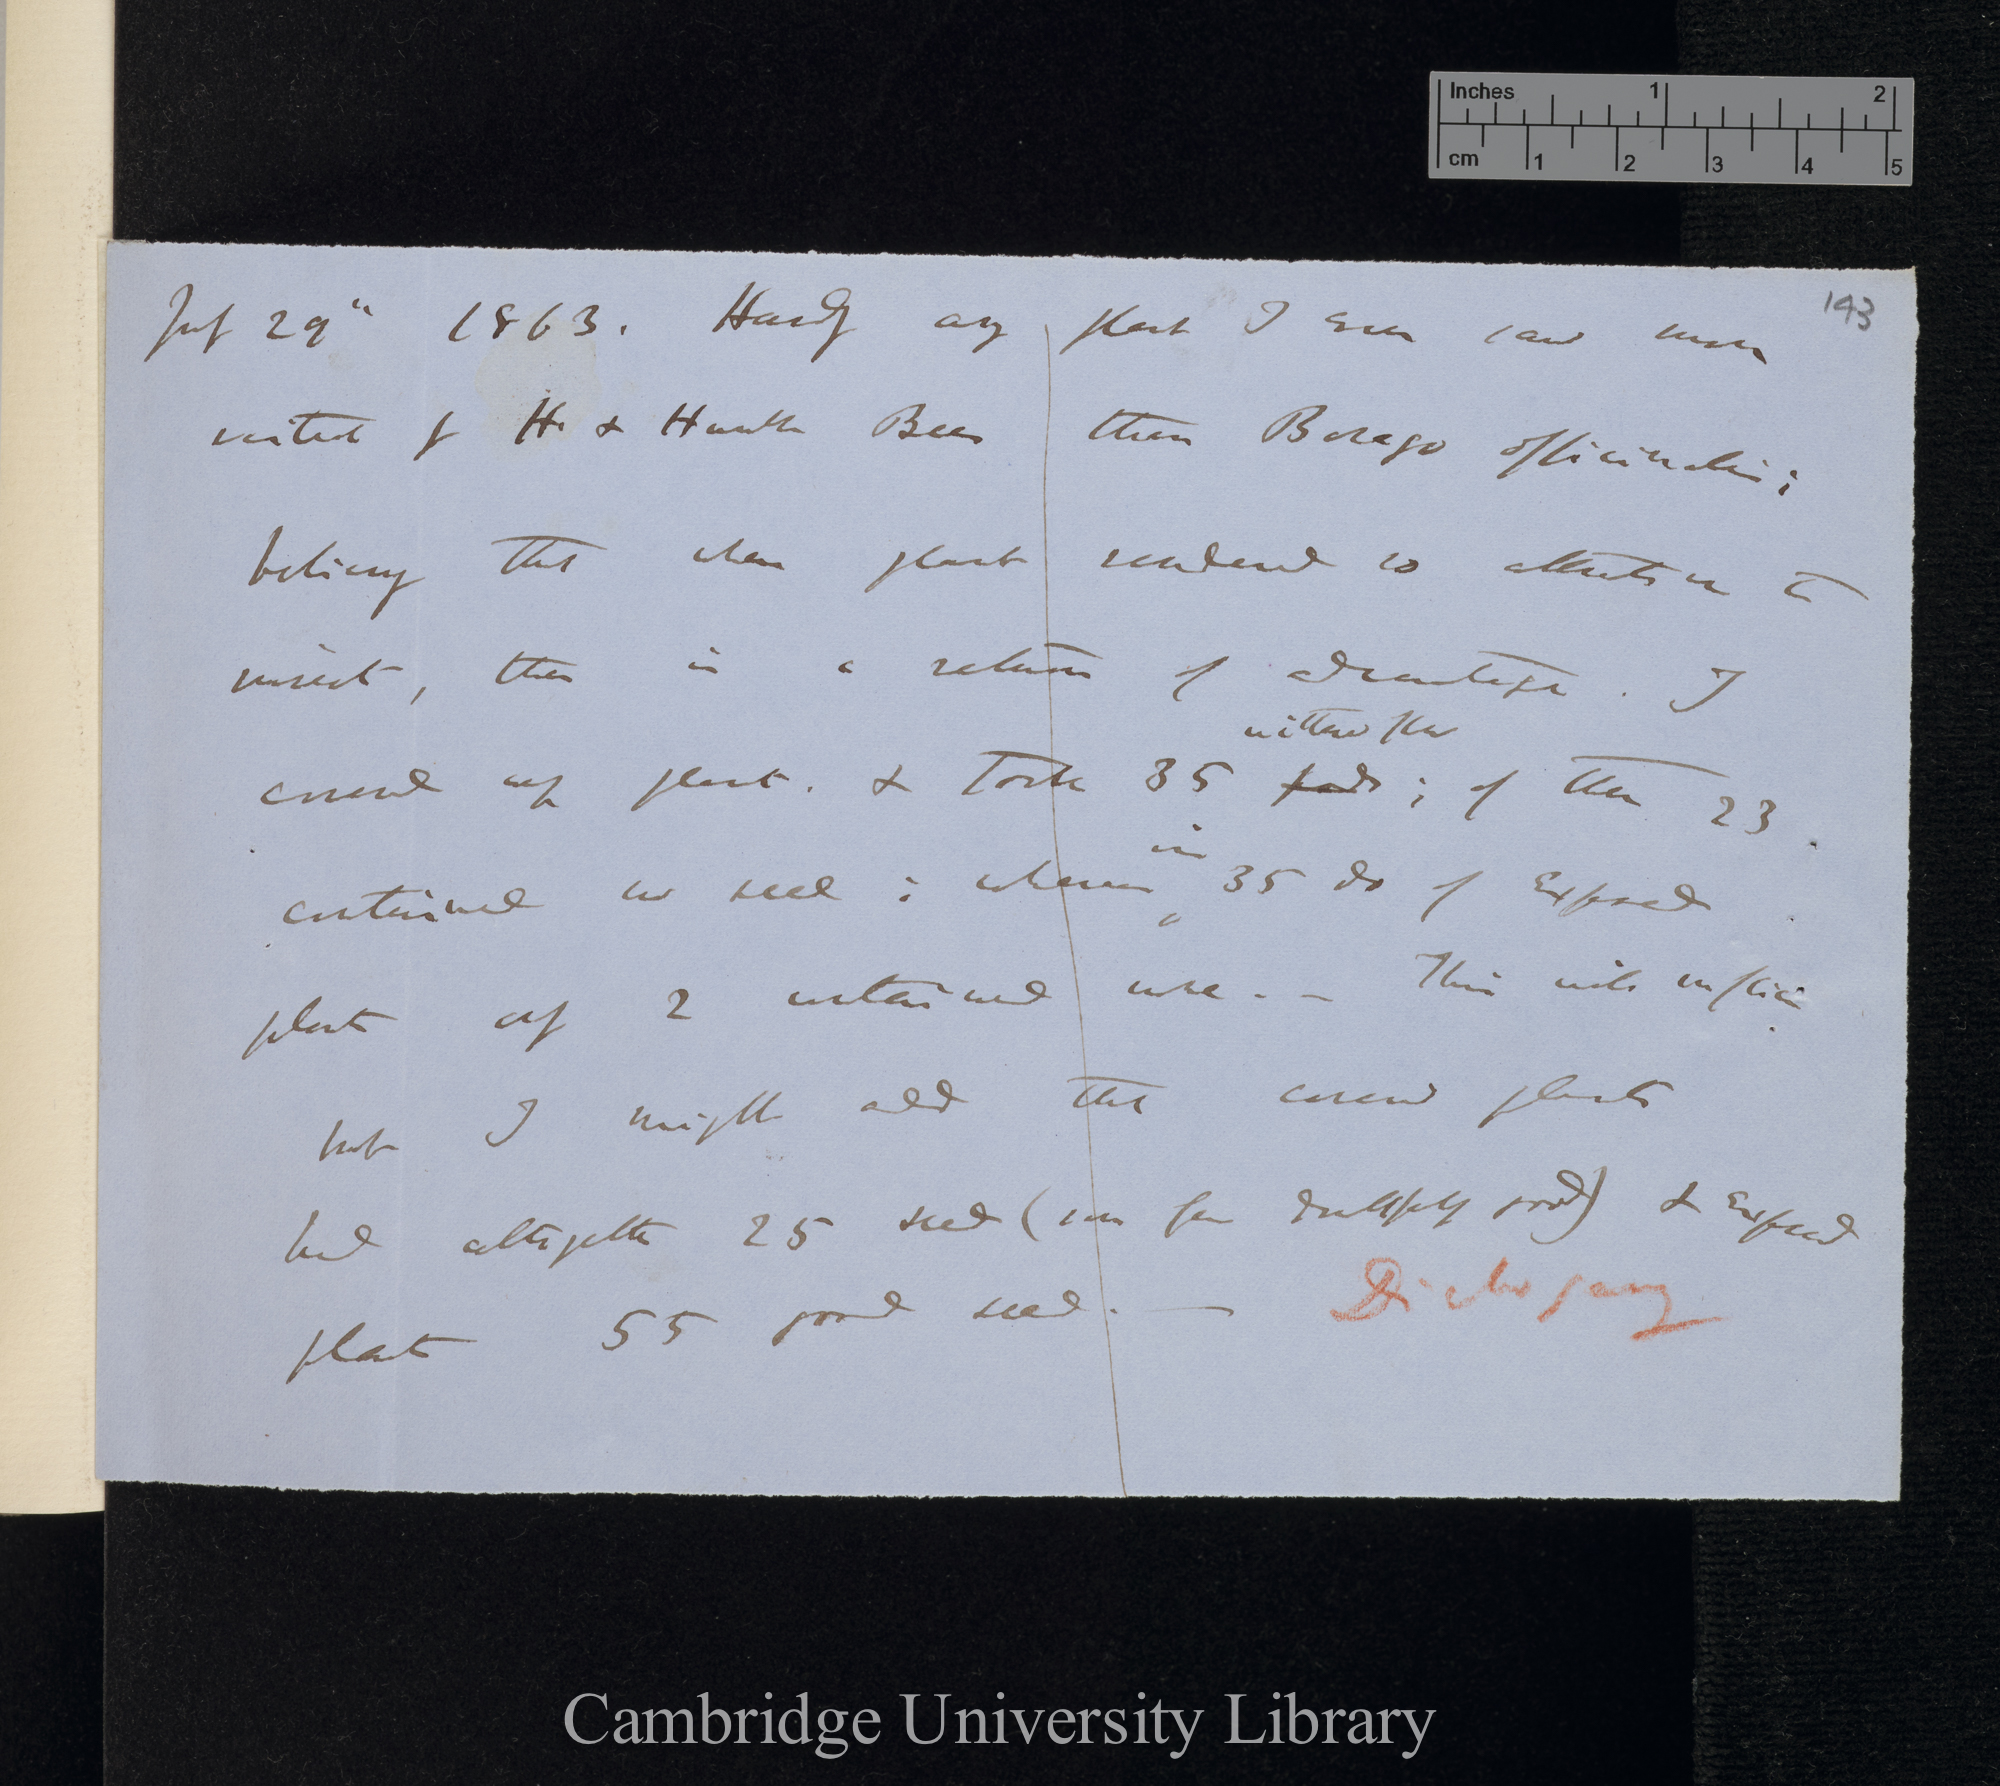 Inches 1 2
cm 1 2 3 4 5
143
July 29th 1863. Hardly any plant I ever saw more
visited by H. & Humble Bees than Borago officinalis;
believing that when plant rendered so attractive to
insects, there is a return of advantage. I
covered up plant. & took 35 withered flow pods; of these 23
contained no seed; whereas in 35 do of exposed
plant only 2 contained none. — This will suffice
but I might add that covered plants
had altogether 25 seed (some few doubtfully good) & Exposed
plants 55 good seed. —
Dichogamy
Cambridge University Library